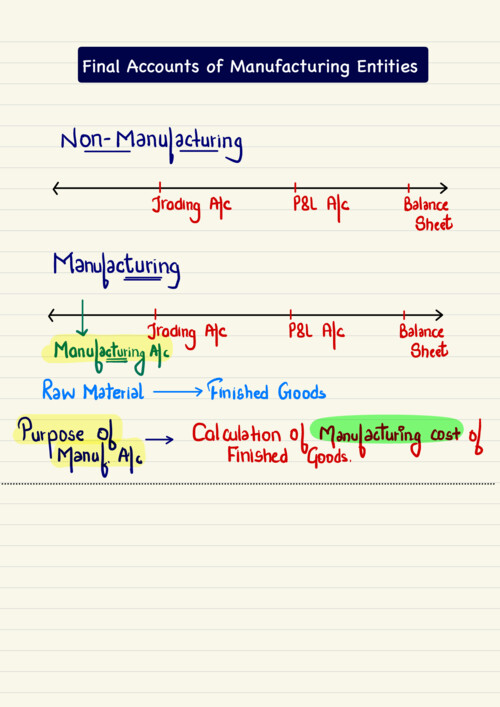 Final Accounts of Manufacturing Entities
Non-Manufacturing
Trading A/c P&L A/c Balance
Sheet
Manufacturing
Trading A/c P&L A/c Balance
Manufacturing A/c Sheet
Raw Material → Finished Goods
Purpose of → Calculation of Manufacturing cost of
Manuf. A/c Finished Goods.